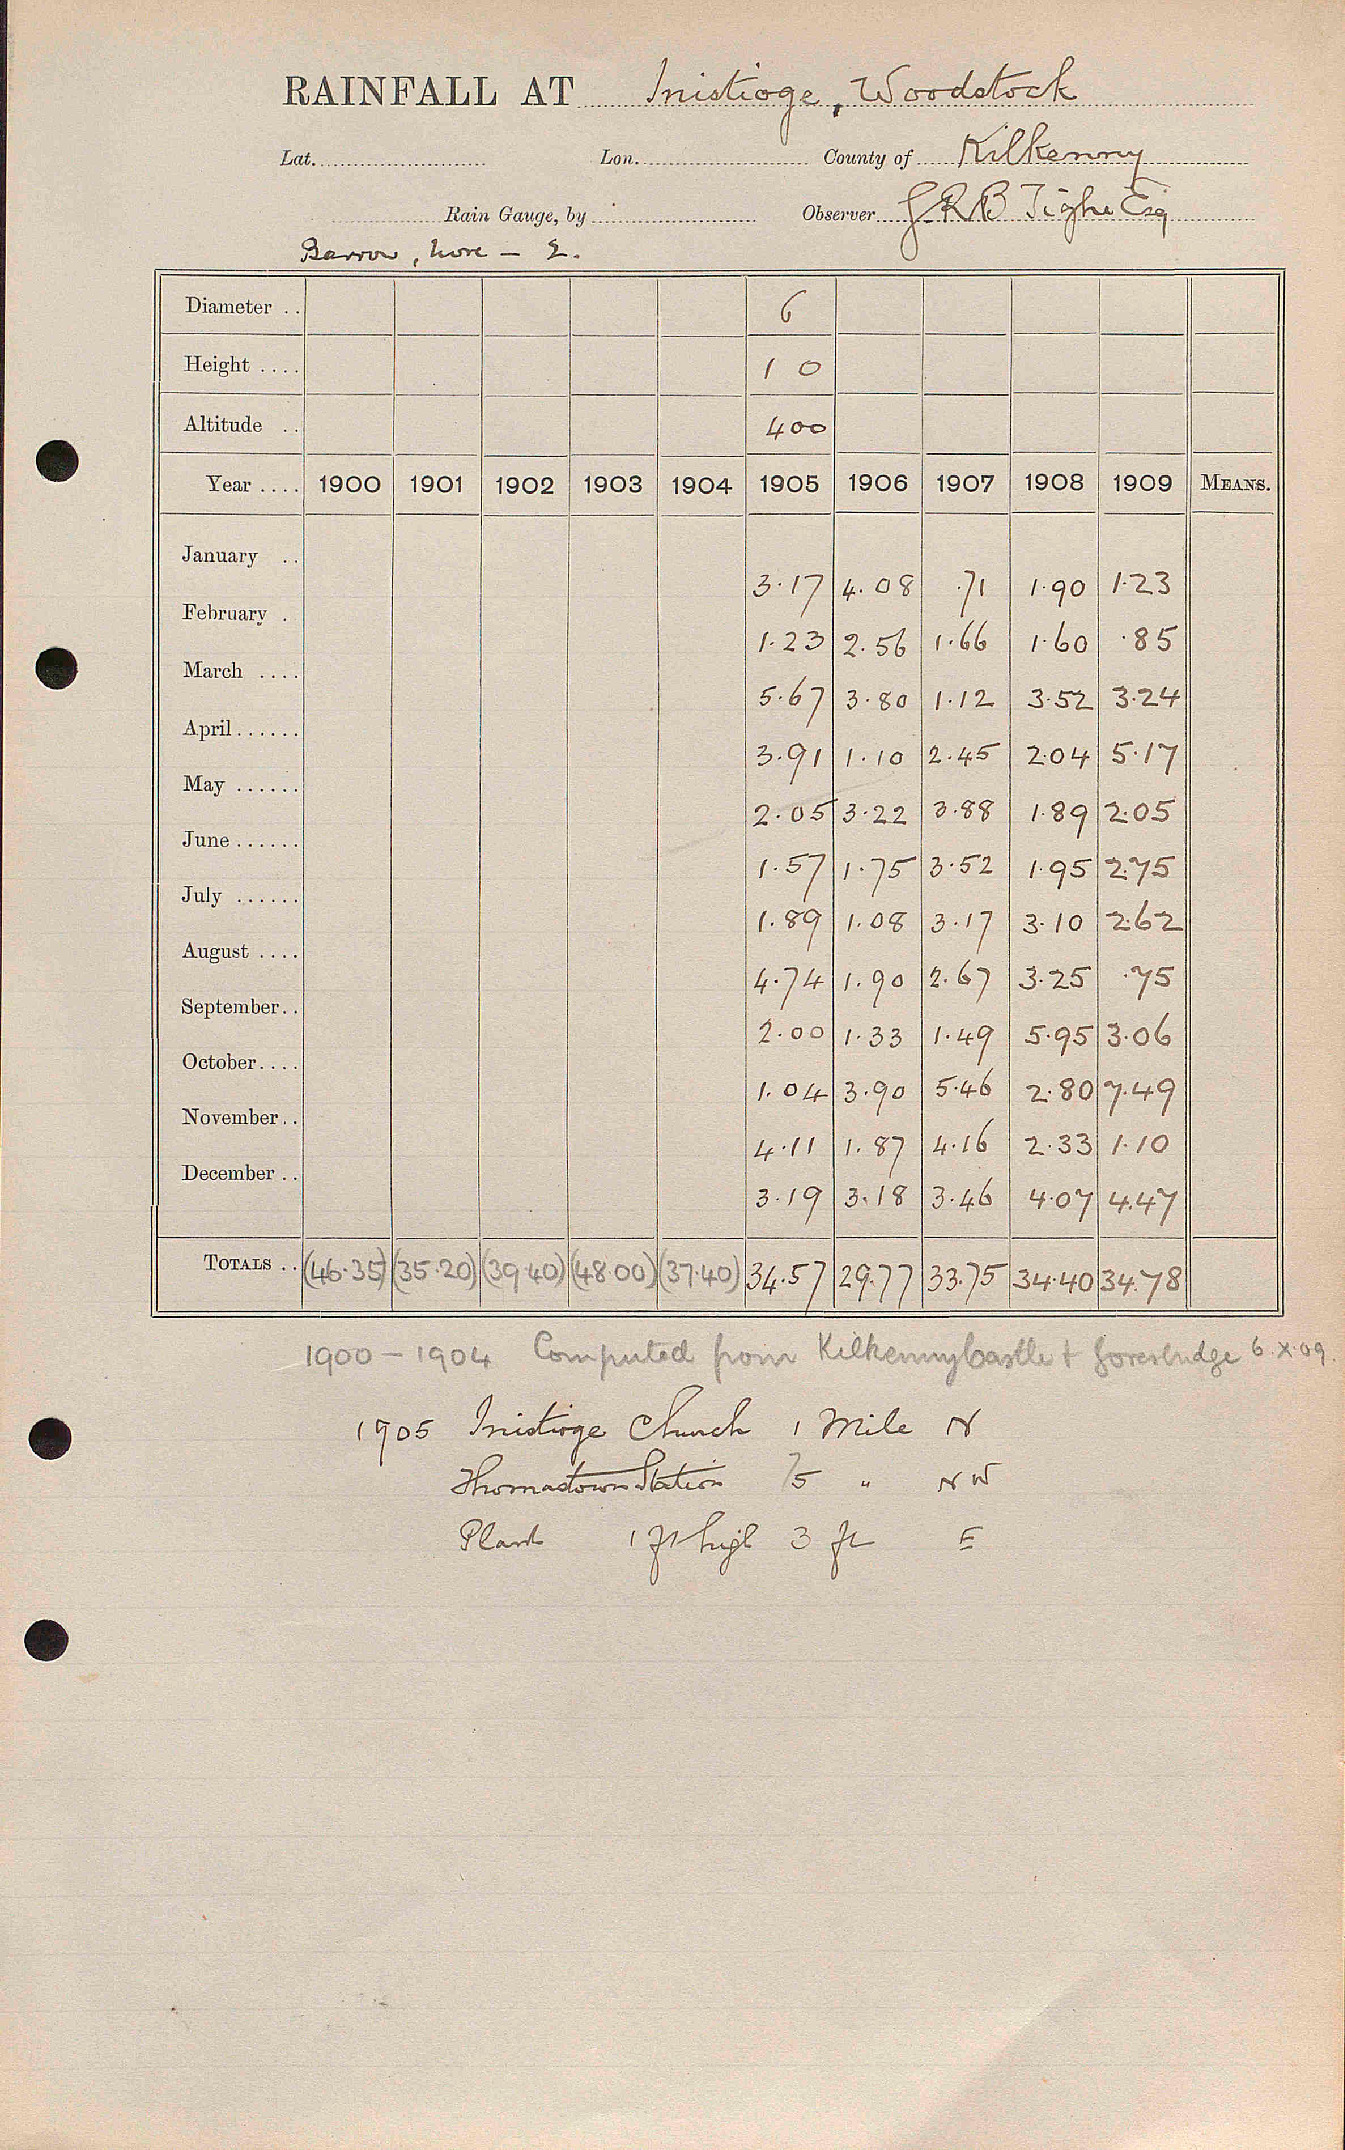 RAINFALL AT Inistioge, Woodstock
Lat. Lon. County of Kilkenny
Rain Gauge, by Observer J R B Tighe Esq
Barrow, Nore — 2.
Diameter .. 6
Height .... 1 0
Altitude .. 400
Year .... 1900 1901 1902 1903 1904 1905 1906 1907 1908 1909 MEANS.
January .. 3.17 4.08 .71 1.90 1.23
February . 1.23 2.56 1.66 1.60 .85
March .... 5.67 3.80 1.12 3.52 3.24
April...... 3.91 1.10 2.45 2.04 5.17
May ...... 2.05 3.22 3.88 1.89 2.05
June...... 1.57 1.75 3.52 1.95 2.75
July ...... 1.89 1.08 3.17 3.10 2.62
August .... 4.74 1.90 2.67 3.25 .75
September.. 2.00 1.33 1.49 5.95 3.06
October.... 1.04 3.90 5.46 2.80 7.49
November.. 4.11 1.87 4.16 2.33 1.10
December .. 3.19 3.18 3.46 4.07 4.47
TOTALS .. (46.35) (35.20) (39.40) (48.00) (37.40) 34.57 29.77 33.75 34.40 34.78
1900 — 1904 Computed from Kilkenny Castle + 6.X.09.
1905 Inistioge Church 1 Mile N
Thomastown Station 5 " NW
Plant 1 ft high 3 ft E